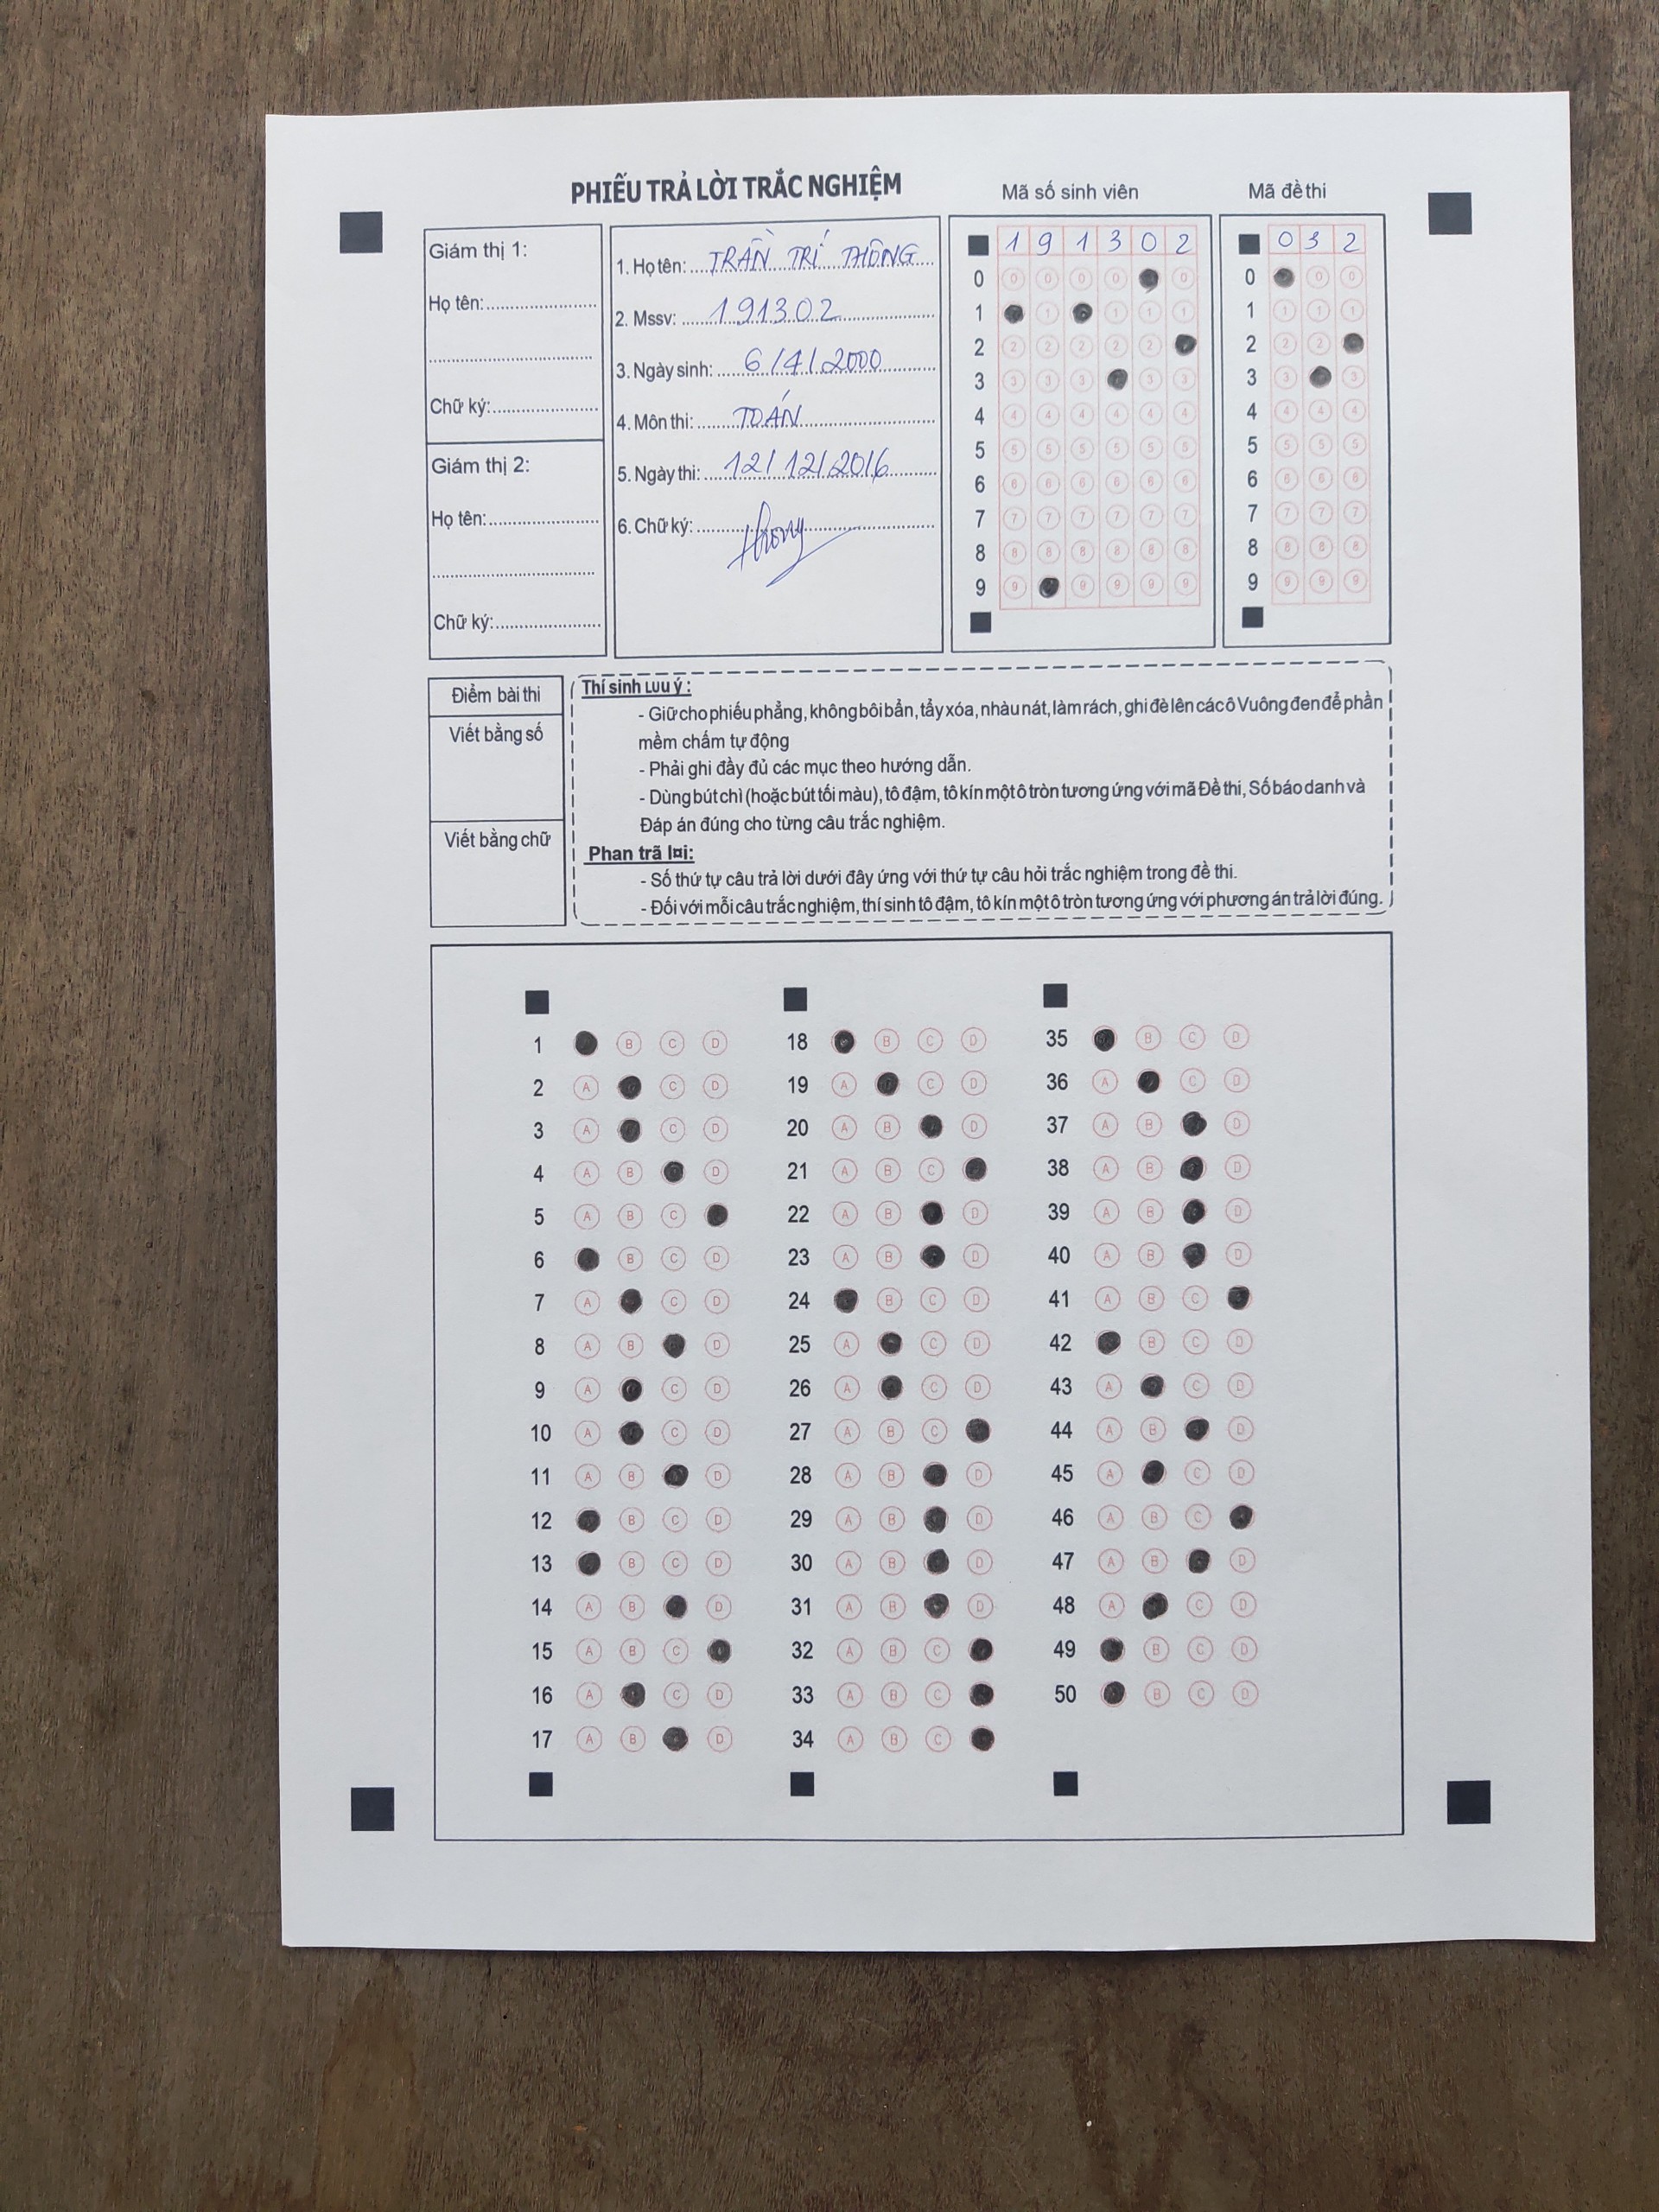 PHIẾU TRẢ LỜI TRẮC NGHIỆM
Giám thị 1:
Họ tên:
Chữ ký:
Giám thị 2:
Họ tên:
Chữ ký:
1. Họ tên: TRẦN TRÍ THÔNG
2. Mssv: 191302
3. Ngày sinh: 6/4/2000
4. Môn thi: TOÁN
5. Ngày thi: 12/12/2016
6. Chữ ký: thong
Mã số sinh viên
1 9 1 3 0 2
0 0 0 0 0 0
1 1 1 1 1
2 2 2 2 2 2
3 3 3 3 3 3
4 4 4 4 4 4 4
5 5 5 5 5 5 5
6 6 6 6 6 6 6
7 7 7 7 7 7 7
8 8 8 8 8 8 8
9 9 9 9 9 9
Mã đề thi
0 3 2
0 0 0
1 1 1 1
2 2 2
3 3 3
4 4 4 4
5 5 5 5
6 6 6 6
7 7 7 7
8 8 8 8
9 9 9 9
Điểm bài thi
Viết bằng số
Viết bằng chữ
Thí sinh Lưu ý:
- Giữ cho phiếu phẳng, không bôi bẩn, tẩy xóa, nhàu nát, làm rách, ghi đè lên các ô Vuông đen để phần
mềm chấm tự động
- Phải ghi đầy đủ các mục theo hướng dẫn.
- Dùng bút chì (hoặc bút tối màu), tô đậm, tô kín một ô tròn tương ứng với mã Đề thi, Số báo danh và
Đáp án đúng cho từng câu trắc nghiệm.
Phan trã l¤i:
- Số thứ tự câu trả lời dưới đây ứng với thứ tự câu hỏi trắc nghiệm trong đề thi.
- Đối với mỗi câu trắc nghiệm, thí sinh tô đậm, tô kín một ô tròn tương ứng với phương án trả lời đúng.
1 B C D
2 A C D
3 A C D
4 A B D
5 A B C
6 B C D
7 A C D
8 A B D
9 A C D
10 A C D
11 A B D
12 B C D
13 B C D
14 A B D
15 A B C
16 A C D
17 A B D
18 B C D
19 A C D
20 A B D
21 A B C
22 A B D
23 A B D
24 B C D
25 A C D
26 A C D
27 A B C
28 A B D
29 A B D
30 A B D
31 A B D
32 A B C
33 A B C
34 A B C
35 B C D
36 A C D
37 A B D
38 A B D
39 A B D
40 A B D
41 A B C
42 B C D
43 A C D
44 A B D
45 A C D
46 A B C
47 A B D
48 A C D
49 B C D
50 B C D